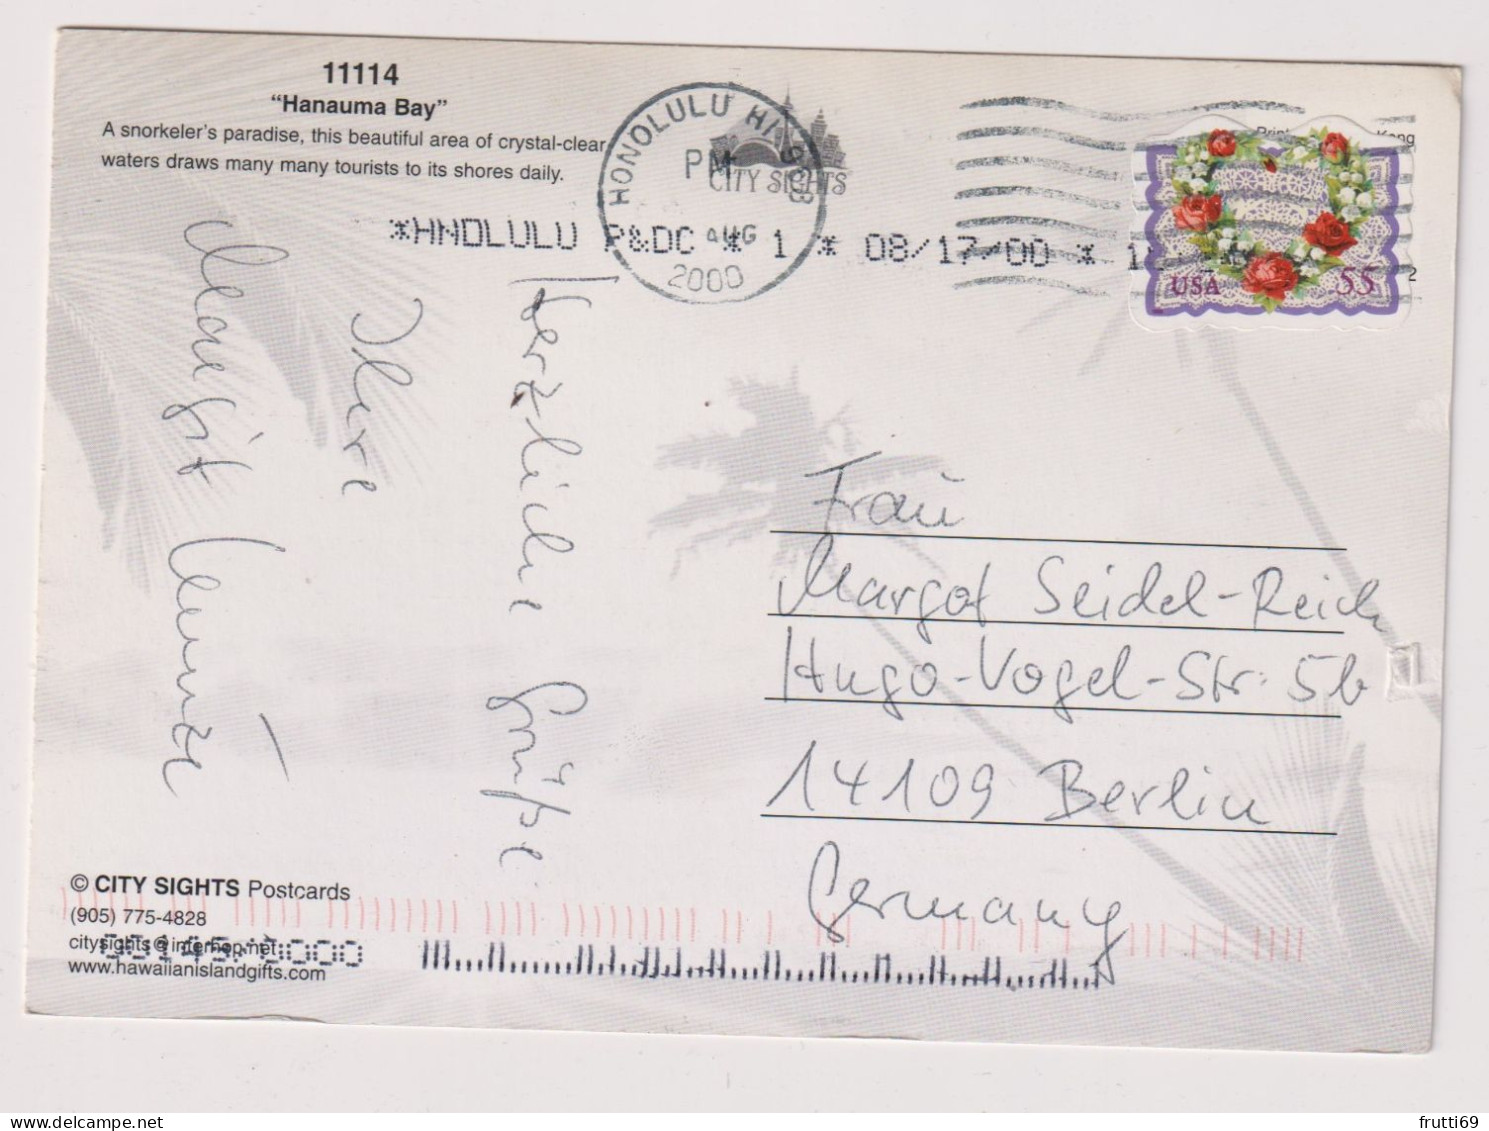 11114
"Hanauma Bay"
A snorkeler's paradise, this beautiful area of crystal-clear
waters draws many many tourists to its shores daily.
HONOLULU HI 968
PM
AUG
2000
CITY SIGHTS
*HNOLULU P&DC * 1 * 08/17/00 *
USA 55
Herzliche Grüße
Ihre
Margit
Frau
Margot Seidel-Reich
Hugo-Vogel-Str. 5b
14109 Berlin
Germany
© CITY SIGHTS Postcards
(905) 775-4828
citysights@interhop.net
www.hawaiianislandgifts.com
frutti69